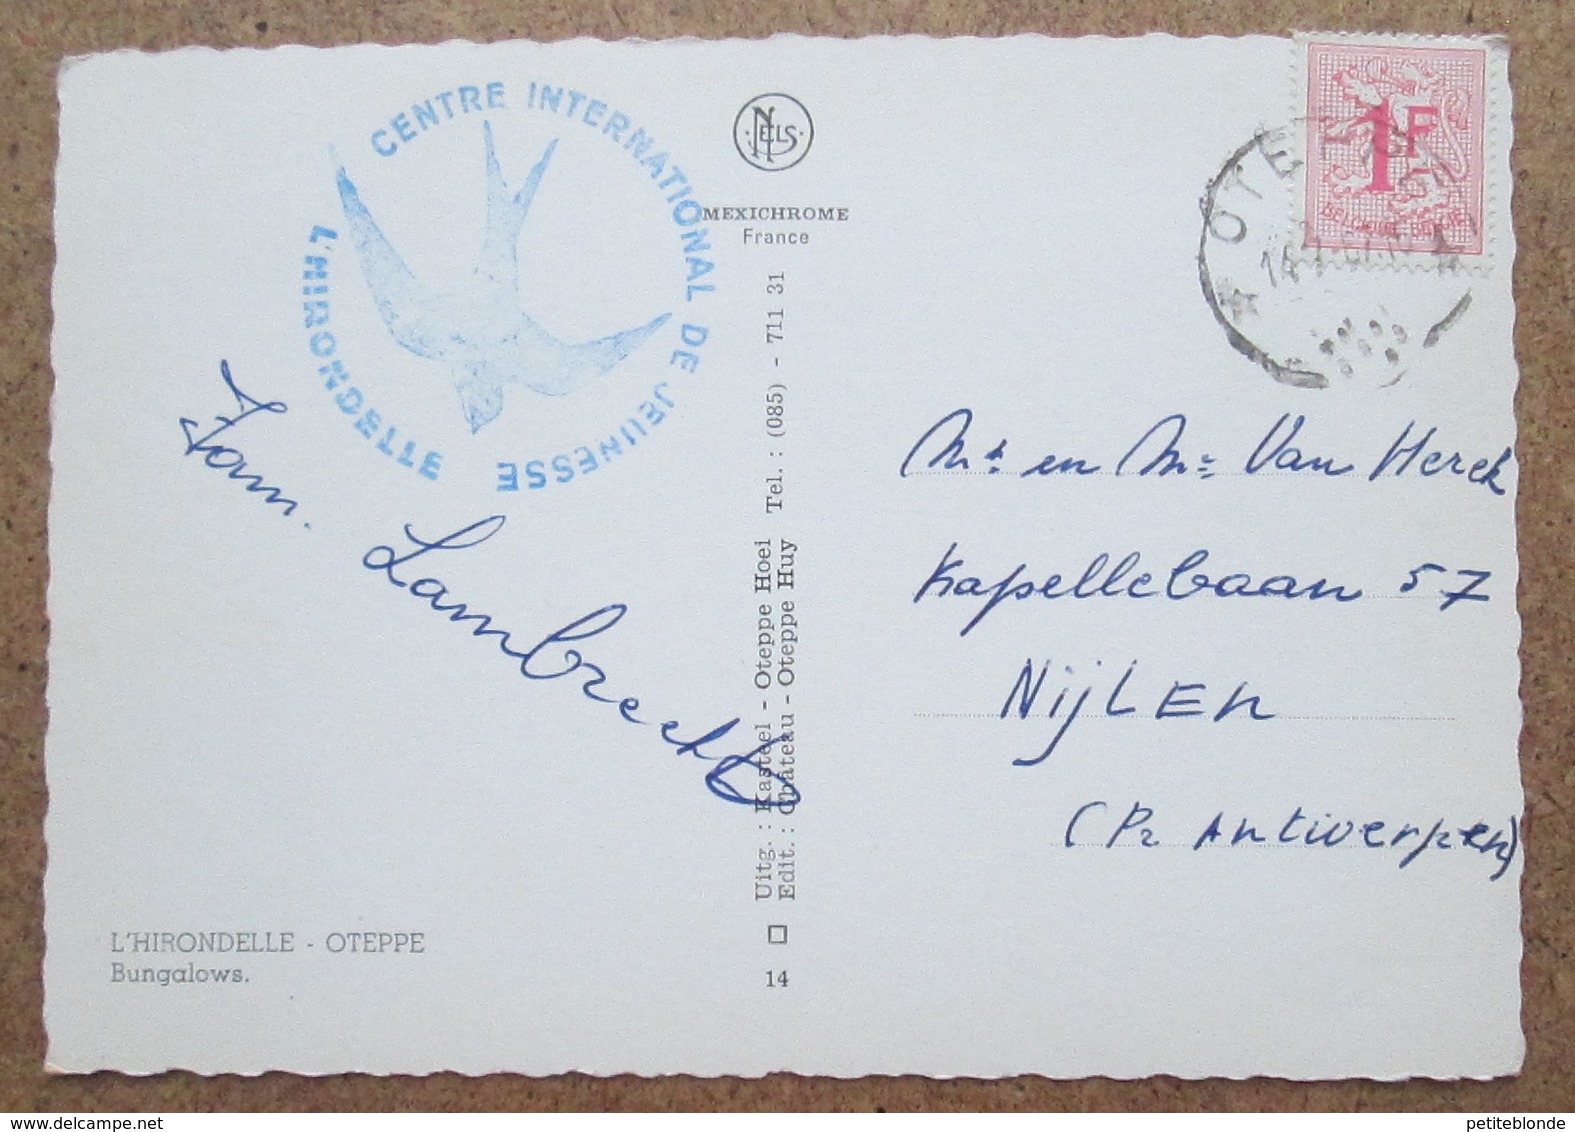 CENTRE INTERNATIONAL DE JEUNESSE
L'HIRONDELLE
Fam. Lambrechts
L'HIRONDELLE - OTEPPE
Bungalows.
NELS
MEXICHROME
France
Uitg. : Kasteel - Oteppe Hoei Tel. : (085) - 711 31
Edit. : Château - Oteppe Huy
14
1F
BELGIQUE-BELGIË
OTEPPE
Mr en Mr Van Herck
Kapellebaan 57
NijLEn
(Pr Antwerpen)
petiteblonde